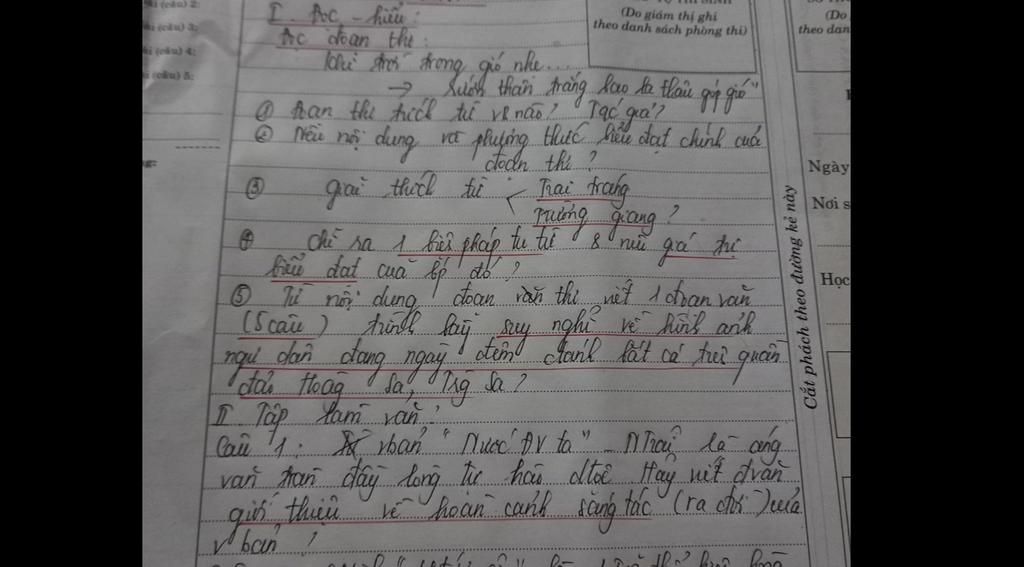 câu) 2:
câu) 3:
(câu) 4:
(câu) 5:
(Do giám thị ghi
theo danh sách phòng thi)
(Do
theo dan
I. Đọc - hiểu:
Đọc đoạn thơ:
Khi trời trong gió nhẹ...
→ Rướn thân trắng bao la thâu góp gió"
① Đoạn thơ trích từ VB nào? Tác giả?
② Nêu nội dung và phương thức biểu đạt chính của
đoạn thơ?
③ giải thích từ < Trai tráng
Trường giang?
④ Chỉ ra 1 biện pháp tu từ & nêu giá trị
biểu đạt của bp đó?
⑤ Từ nội dung đoạn thơ viết 1 đoạn văn
(5 câu) trình bày suy nghĩ về hình ảnh
ngư dân đang ngày đêm đánh bắt cá trên quần
đảo Hoàng Sa, Trg Sa?
II. Tập làm văn:
Câu 1: vbản "Nước ĐV ta" - NTrãi là áng
văn tràn đầy lòng tự hào dtộc Hãy viết đvăn
giới thiệu về hoàn cảnh sáng tác (ra đời) của
vbản?
Cắt phách theo đường kẻ này
Ngày
Nơi s
Học